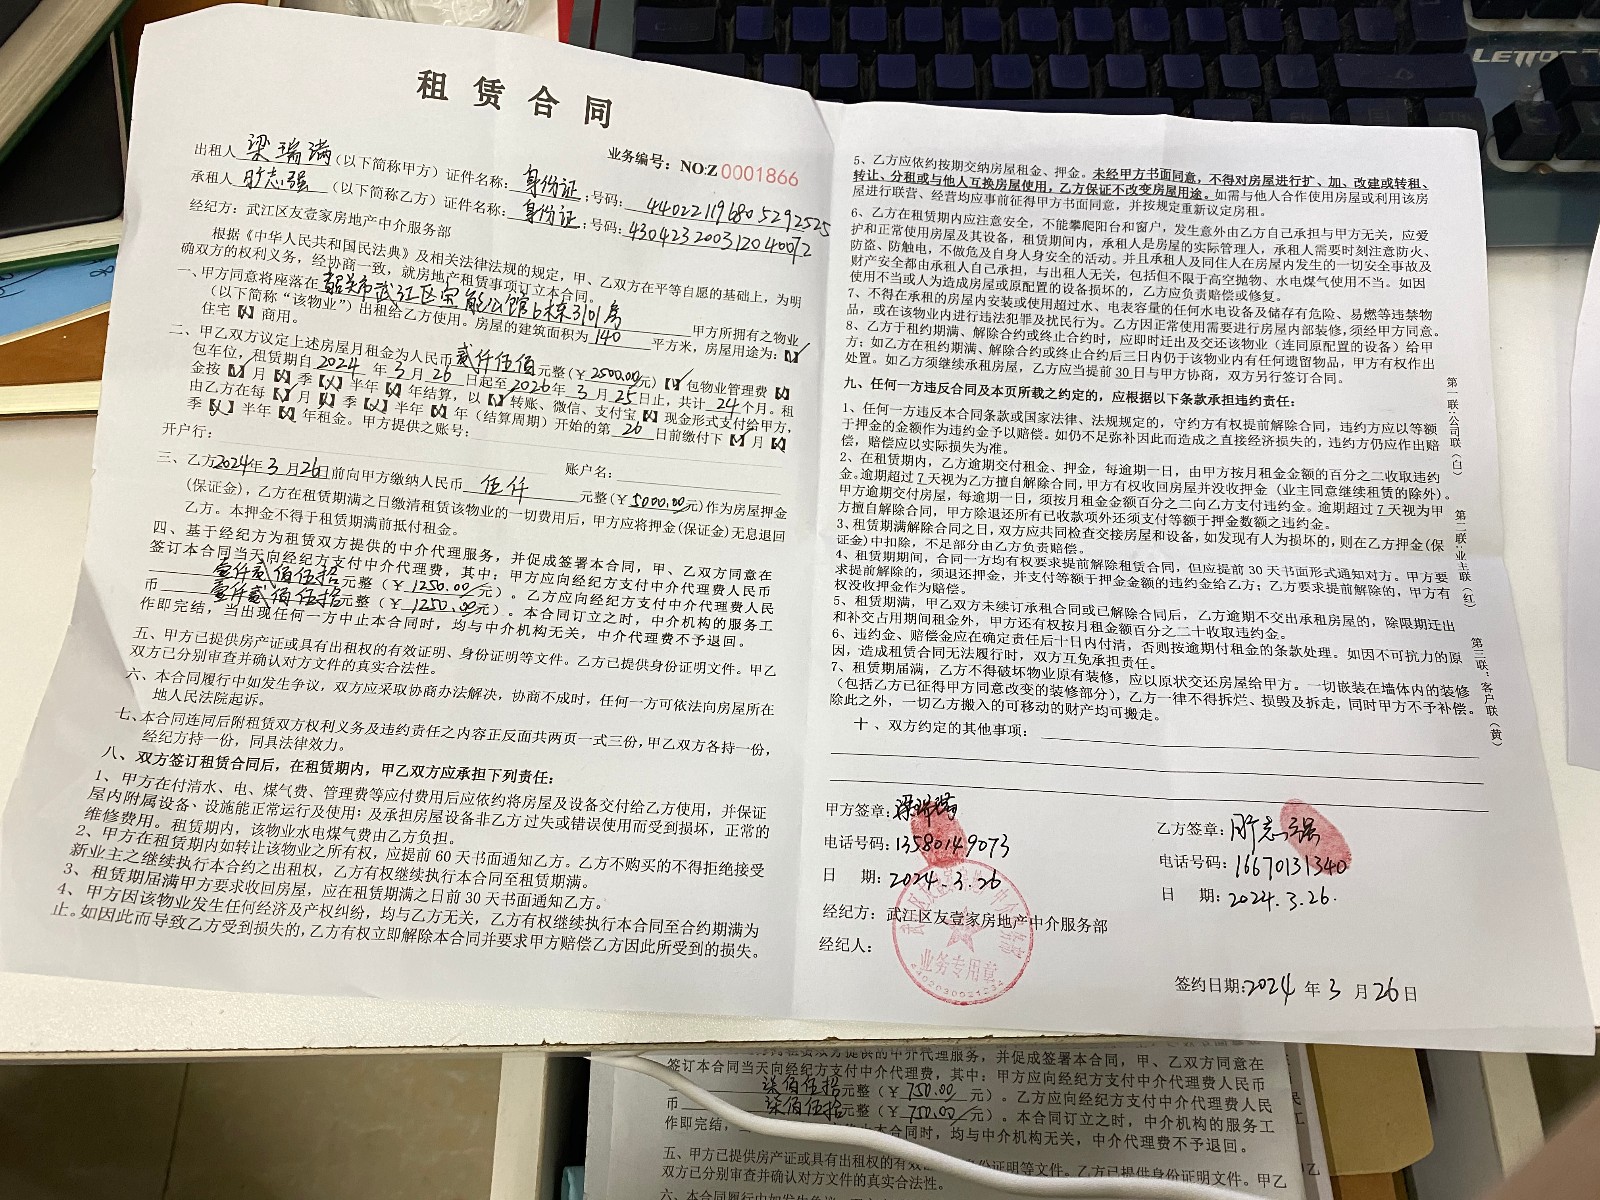 租赁合同
业务编号：NO:Z 0001866
出租人 梁瑞满（以下简称甲方）证件名称：身份证；号码：440221196805292525
承租人 志强（以下简称乙方）证件名称：身份证；号码：430423200312040012
经纪方：武江区友壹家房地产中介服务部
根据《中华人民共和国民法典》及相关法律法规的规定，甲、乙双方在平等自愿的基础上，为明
确双方的权利义务，经协商一致，就房地产租赁事项订立本合同。
一、甲方同意将座落在 韶关市武江区 公馆6栋3101房 甲方所拥有之物业
（以下简称“该物业”）出租给乙方使用。房屋的建筑面积为 140 平方米，房屋用途为：【√】
住宅【】商用。
二、甲乙双方议定上述房屋月租金为人民币 贰仟伍佰 元整（￥2500.00元）【】包物业管理费【】
包车位，租赁期自 2024 年 3 月 26 日起至 2026 年 3 月 25 日止，共计 24 个月。租
金按【】月【】季【】半年【】年结算，以【】转账、微信、支付宝【】现金形式支付给甲方，
由乙方在每【】月【】季【】半年【】年（结算周期）开始的第 26 日前缴付下【】月【】
季【】半年【】年租金。甲方提供之账号：
开户行： 账户名：
三、乙方 2024年 3 月 26日前向甲方缴纳人民币 伍仟 元整（￥5000.00元）作为房屋押金
（保证金），乙方在租赁期满之日缴清租赁该物业的一切费用后，甲方应将押金（保证金）无息退回
乙方。本押金不得于租赁期满前抵付租金。
四、基于经纪方为租赁双方提供的中介代理服务，并促成签署本合同，甲、乙双方同意在
签订本合同当天向经纪方支付中介代理费，其中：甲方应向经纪方支付中介代理费人民币
壹仟贰佰伍拾元整（￥1250.00元）。乙方应向经纪方支付中介代理费人民
币 壹仟贰佰伍拾元整（￥1250.00元）。本合同订立之时，中介机构的服务工
作即完结，当出现任何一方中止本合同时，均与中介机构无关，中介代理费不予退回。
五、甲方已提供房产证或具有出租权的有效证明、身份证明等文件。乙方已提供身份证明文件。甲乙
双方已分别审查并确认对方文件的真实合法性。
六、本合同履行中如发生争议，双方应采取协商办法解决，协商不成时，任何一方可依法向房屋所在
地人民法院起诉。
七、本合同连同后附租赁双方权利义务及违约责任之内容正反面共两页一式三份，甲乙双方各持一份，
经纪方持一份，同具法律效力。
八、双方签订租赁合同后，在租赁期内，甲乙双方应承担下列责任：
1、甲方在付清水、电、煤气费、管理费等应付费用后应依约将房屋及设备交付给乙方使用，并保证
屋内附属设备、设施能正常运行及使用；及承担房屋设备非乙方过失或错误使用而受到损坏，正常的
维修费用。租赁期内，该物业水电煤气费由乙方负担。
2、甲方在租赁期内如转让该物业之所有权，应提前 60 天书面通知乙方。乙方不购买的不得拒绝接受
新业主之继续执行本合约之出租权，乙方有权继续执行本合同至租赁期满。
3、租赁期届满甲方要求收回房屋，应在租赁期满之日前 30 天书面通知乙方。
4、甲方因该物业发生任何经济及产权纠纷，均与乙方无关，乙方有权继续执行本合同至合约期满为
止。如因此而导致乙方受到损失的，乙方有权立即解除本合同并要求甲方赔偿乙方因此所受到的损失。
5、乙方应依约按期交纳房屋租金、押金。未经甲方书面同意，不得对房屋进行扩、加、改建或转租、
转让、分租或与他人互换房屋使用，乙方保证不改变房屋用途。如需与他人合作使用房屋或利用该房
屋进行联营、经营均应事前征得甲方书面同意，并按规定重新议定房租。
6、乙方在租赁期内应注意安全，不能攀爬阳台和窗户，发生意外由乙方自己承担与甲方无关，应爱
护和正常使用房屋及其设备，租赁期间内，承租人是房屋的实际管理人，承租人需要时刻注意防火、
防盗、防触电，不做危及自身人身安全的活动。并且承租人及同住人在房屋内发生的一切安全事故及
财产安全都由承租人自己承担，与出租人无关，包括但不限于高空抛物、水电煤气使用不当。如因
使用不当或人为造成房屋或原配置的设备损坏的，乙方应负责赔偿或修复。
7、不得在承租的房屋内安装或使用超过水、电表容量的任何水电设备及储存有危险、易燃等违禁物
品，或在该物业内进行违法犯罪及扰民行为。乙方因正常使用需要进行房屋内部装修，须经甲方同意。
8、乙方于租约期满、解除合约或终止合约时，应即时迁出及交还该物业（连同原配置的设备）给甲
方；如乙方在租约期满、解除合约或终止合约后三日内仍于该物业内有任何遗留物品，甲方有权作出
处置。如乙方须继续承租房屋，乙方应当提前 30 日与甲方协商，双方另行签订合同。
九、任何一方违反合同及本页所载之约定的，应根据以下条款承担违约责任：
1、任何一方违反本合同条款或国家法律、法规规定的，守约方有权提前解除合同，违约方应以等额
于押金的金额作为违约金予以赔偿。如仍不足弥补因此而造成之直接经济损失的，违约方仍应作出赔
偿，赔偿应以实际损失为准。
2、在租赁期内，乙方逾期交付租金、押金，每逾期一日，由甲方按月租金金额的百分之二收取违约
金。逾期超过 7 天视为乙方擅自解除合同，甲方有权收回房屋并没收押金（业主同意继续租赁的除外）。
甲方逾期交付房屋，每逾期一日，须按月租金金额百分之二向乙方支付违约金。逾期超过 7 天视为甲
方擅自解除合同，甲方除退还所有已收款项外还须支付等额于押金数额之违约金。
3、租赁期满解除合同之日，双方应共同检查交接房屋和设备，如发现有人为损坏的，则在乙方押金（保
证金）中扣除，不足部分由乙方负责赔偿。
4、租赁期期间，合同一方均有权要求提前解除租赁合同，但应提前 30 天书面形式通知对方。甲方要
求提前解除的，须退还押金，并支付等额于押金金额的违约金给乙方；乙方要求提前解除的，甲方有
权没收押金作为赔偿。
5、租赁期满，甲乙双方未续订承租合同或已解除合同后，乙方逾期不交出承租房屋的，除限期迁出
和补交占用期间租金外，甲方还有权按月租金额百分之二十收取违约金。
6、违约金、赔偿金应在确定责任后十日内付清，否则按逾期付租金的条款处理。如因不可抗力的原
因，造成租赁合同无法履行时，双方互免承担责任。
7、租赁期届满，乙方不得破坏物业原有装修，应以原状交还房屋给甲方。一切嵌装在墙体内的装修
（包括乙方已征得甲方同意改变的装修部分），乙方一律不得拆烂、损毁及拆走，同时甲方不予补偿。
除此之外，一切乙方搬入的可移动的财产均可搬走。
十、双方约定的其他事项：
第一联：公司联（白）
第二联：业主联（红）
第三联：客户联（黄）
甲方签章：梁瑞满
电话号码：13580149073
日 期：2024.3.26
乙方签章：志强
电话号码：16670131340
日 期：2024.3.26.
经纪方：武江区友壹家房地产中介服务部
经纪人：
业务专用章
签约日期：2024 年 3 月 26 日
LETTO
签订本合同当天向经纪方支付中介代理费，其中：甲方应向经纪方支付中介代理费人民币
柒佰伍拾元整（￥750.00元）。乙方应向经纪方支付中介代理费人民
币 柒佰伍拾元整（￥750.00元）。本合同订立之时，中介机构的服务工
作即完结，止本合同时，均与中介机构无关，中介代理费不予退回。
五、甲方已提供房产证或具有出租权的有效证明、身份证明等文件。乙方已提供身份证明文件。甲乙
双方已分别审查并确认对方文件的真实合法性。
六、本合同履行中如发生争议